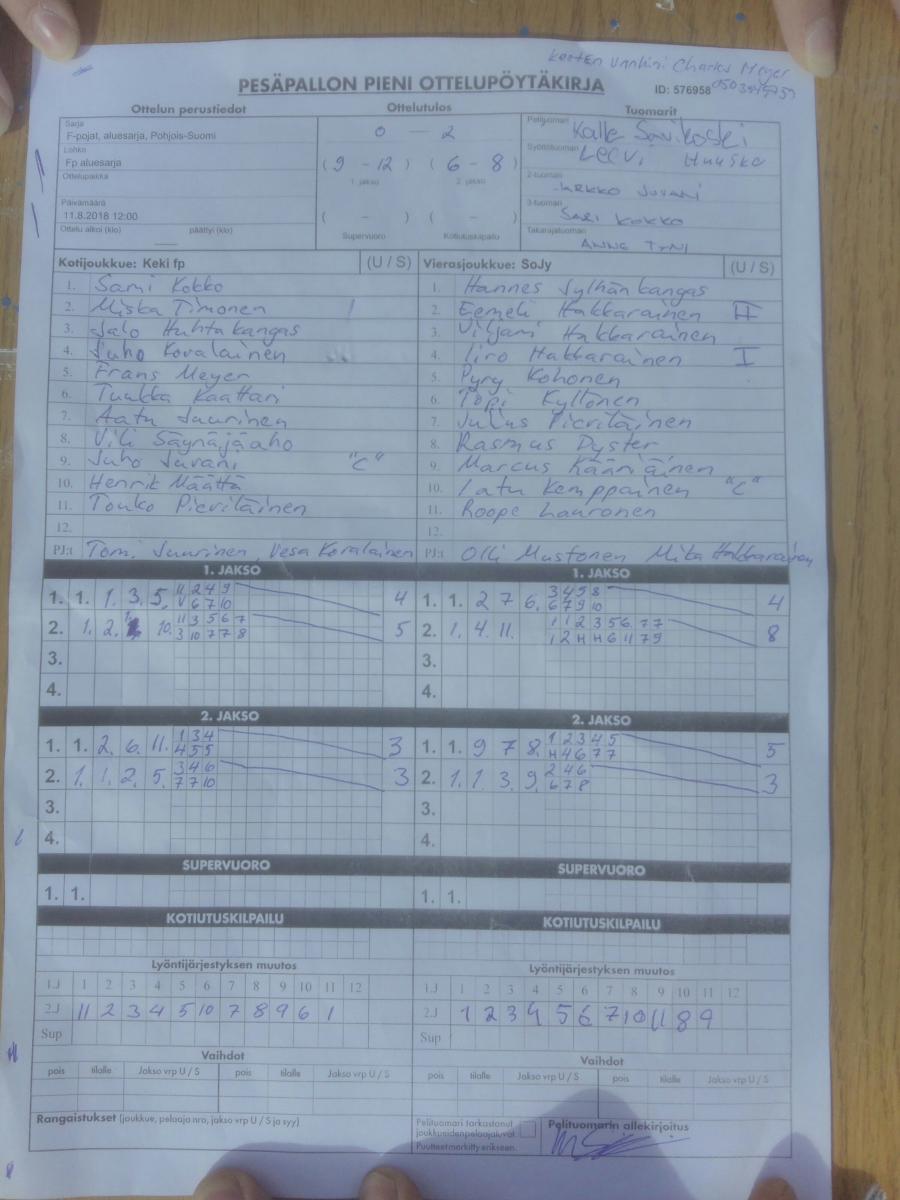 Kenttien Vuokraaja Charles Meyer
PESÄPALLON PIENI OTTELUPÖYTÄKIRJA
ID: 576958
Ottelun perustiedot Ottelutulos Tuomarit
Sarja
F-pojat, aluesarja, Pohjois-Suomi
Lohko
Fp aluesarja
Ottelupaikka
Päivämäärä
11.8.2018 12:00
Ottelu alkoi (klo) päättyi (klo)
0 — 2
( 9 - 12 ) ( 6 - 8 )
1. jakso 2. jakso
( - ) ( - )
Supervuoro Kotiutuskilpailu
Pelituomari Kalle Savikoski
Syöttötuomari Leevi Huusko
2-tuomari Juvani
3-tuomari Sari Kokko
Takarajatuomari Anne Tyni
Kotijoukkue: Keki fp (U / S)
1. Sami Kokko
2. Miska Timonen
3. Jalo Huhtakangas
4. Juho Kovalainen
5. Frans Meyer
6. Tuukka Kaattari
7. Aatu Juurinen
8. Vili Säynäjäaho
9. Juho Juvani "C"
10. Henrik Määttä
11. Touko Pieviläinen
12.
PJ:t Tomi Juurinen, Vesa Kovalainen
Vierasjoukkue: SoJy (U / S)
1. Hannes Jylhänkangas
2. Eemeli Hakkarainen II
3. Viljami Hakkarainen
4. Iiro Hakkarainen I
5. Pyry Kohonen
6. Topi Kyllönen
7. Julius Pieviläinen
8. Rasmus Dyster
9. Marcus Kääriäinen
10. Latu Kemppainen "C"
11. Roope Lauronen
12.
PJ:t Olli Mustonen Mika Hakkarainen
1. JAKSO
1. 1. 1. 3. 5. 11 2 4 9 4
V 6 7 10
2. 1. 2. 10. 11 3 5 6 7 5
3 10 7 7 8
3.
4.
1. JAKSO
1. 1. 2 7 6. 3 4 5 8 4
6 7 9 10
2. 1. 4. 11. 1 1 2 3 5 6 7 7 8
1 2 H H 6 11 7 9
3.
4.
2. JAKSO
1. 1. 2. 6. 11. 1 3 4 3
4 5 5
2. 1. 1. 2. 5. 3 4 6 3
7 7 10
3.
4.
2. JAKSO
1. 1. 9 7 8. 1 2 3 4 5 5
H 4 6 7 7
2. 1. 1. 3. 9. 2 4 6 3
6 7 8
3.
4.
SUPERVUORO
1. 1.
SUPERVUORO
1. 1.
KOTIUTUSKILPAILU
KOTIUTUSKILPAILU
Lyöntijärjestyksen muutos
1.J 1 2 3 4 5 6 7 8 9 10 11 12
2.J 11 2 3 4 5 10 7 8 9 6 1
Sup
Lyöntijärjestyksen muutos
1.J 1 2 3 4 5 6 7 8 9 10 11 12
2.J 1 2 3 4 5 6 7 10 11 8 9
Sup
Vaihdot
pois tilalle Jakso vrp U / S pois tilalle Jakso vrp U / S
Vaihdot
pois tilalle Jakso vrp U / S pois tilalle Jakso vrp U / S
Rangaistukset (joukkue, pelaaja nro, jakso vrp U / S ja syy)
Pelituomari tarkastanut
joukkueidenpelaajaluvat
Puutteet merkitty erikseen.
Pelituomarin allekirjoitus